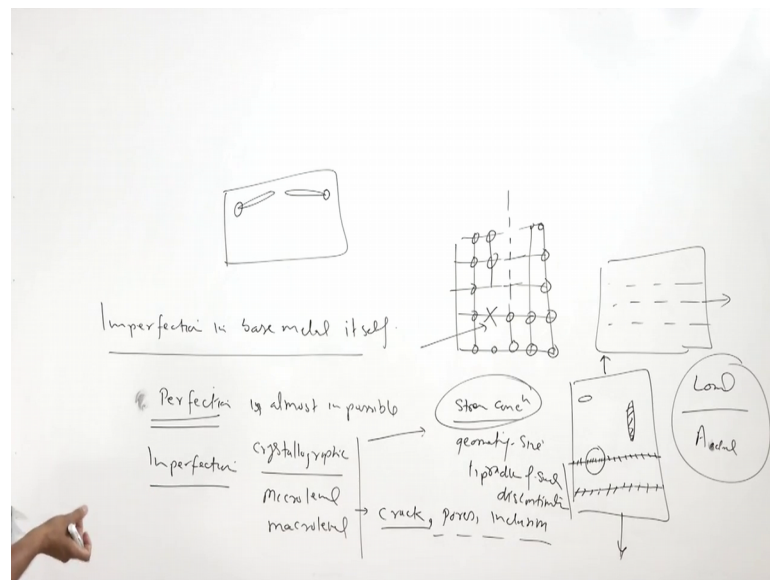 Imperfection in base metal itself.
Perfection is almost impossible
Imperfection
crystallographic
microlevel
macrolevel
Stress conch
geometry-size
discontinuities
crack, pores, inclusion
Load